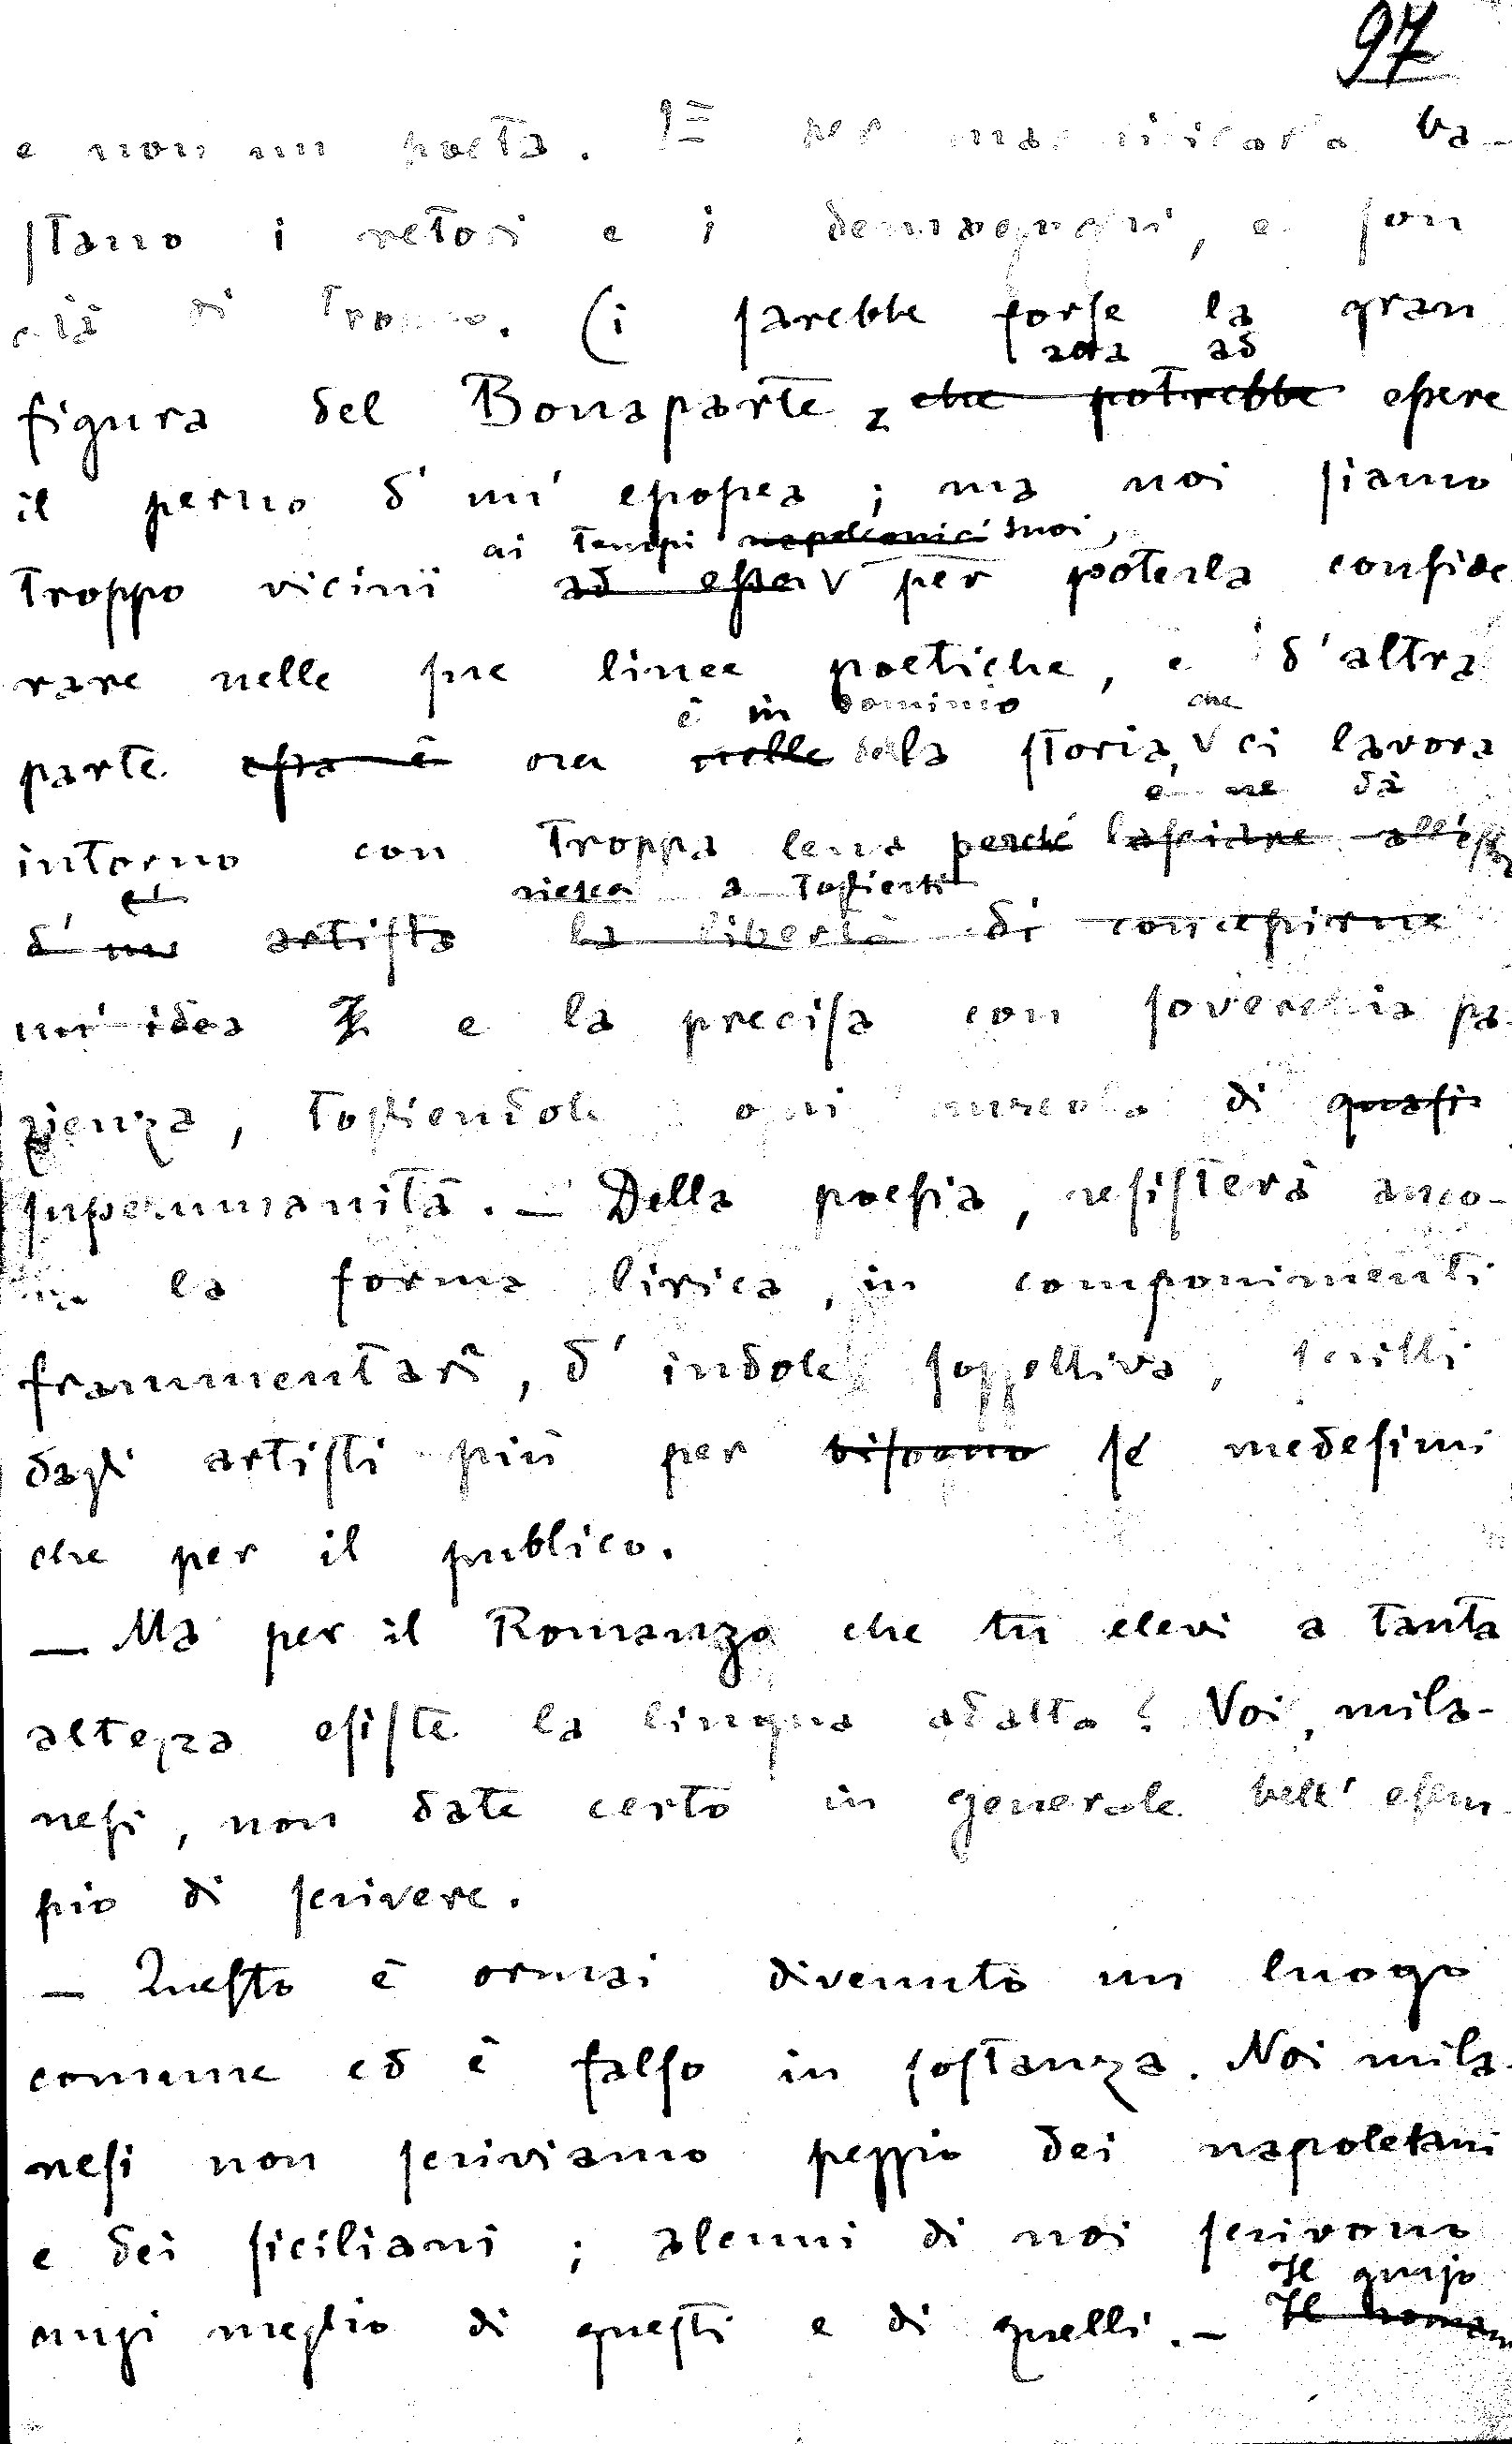 97
e non un poeta. E per
ba-
stano i retori e i demagoghi, e son
già di troppo. Ci sarebbe forse la gran
atta ad
figura del Bonaparte, che potrebbe essere
il perno d'un'epopea; ma noi siamo
ai tempi napoleonici suoi,
troppo vicini ad essa per poterla conside
rare nelle sue linee poetiche, e d'altra
è in dominio che
parte essa è ora nelle della storia, ci lavora
e ne dà
intorno con troppa lena perché lasciare all'
riesca a togliersi
d'un artista la libertà di concepirne
un'idea e la precisa con soverchia pa-
zienza, togliendole ogni aureola di quasi
superumanità. — Della poesia, resisterà anco-
la forma lirica, in componimenti
frammentarî, d'indole soggettiva, scritti
dagli artisti più per bisogno sé medesimi
che per il publico.
— Ma per il Romanzo che tu elevi a tanta
altezza esiste la lingua adatta? Voi, mila-
nesi, non date certo in generale bell'esem-
pio di scrivere.
— Questo è ormai divenuto un luogo
comune ed è falso in sostanza. Noi mila-
nesi non scriviamo peggio dei napoletani
e dei siciliani; alcuni di noi scrivono
Il guajo
anzi meglio di questi e di quelli. — Il